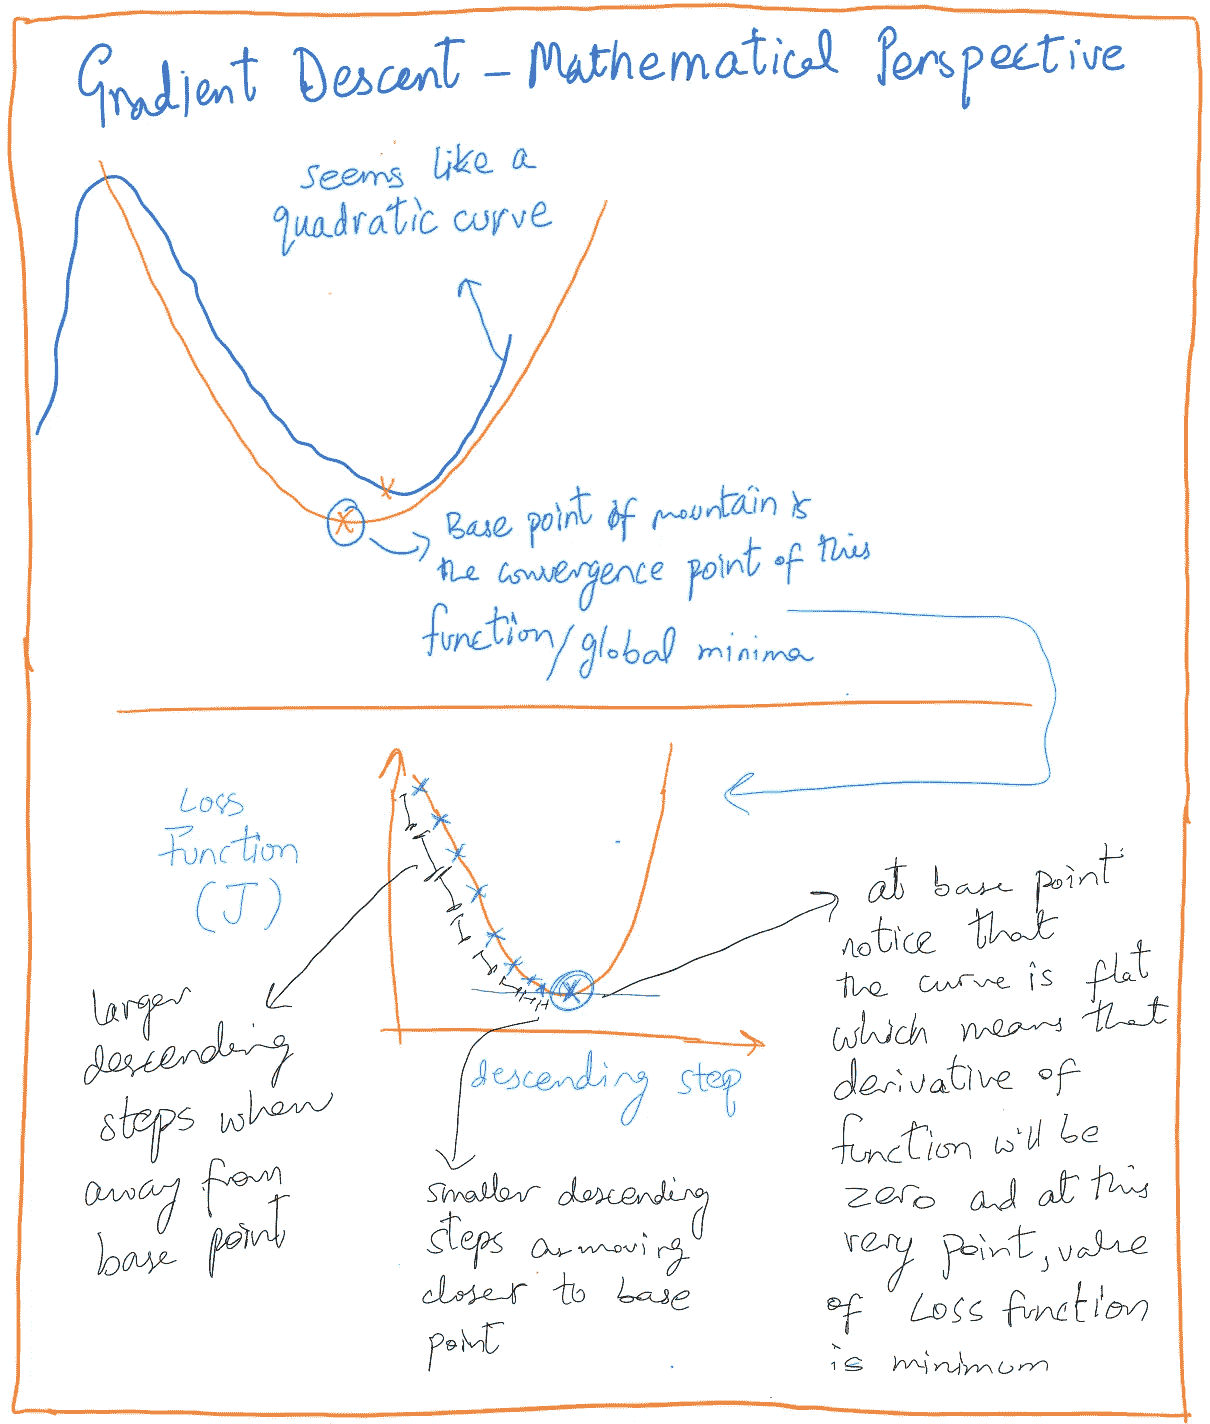 Gradient Descent - Mathematical Perspective
seems like a
quadratic curve
Base point of mountain is
the convergence point of this
function/global minima
Loss
Function
(J)
larger
descending
steps when
away from
base point
descending step
smaller descending
steps as moving
closer to base
point
at base point
notice that
the curve is flat
which means that
derivative of
function will be
zero and at this
very point, value
of Loss function
is minimum